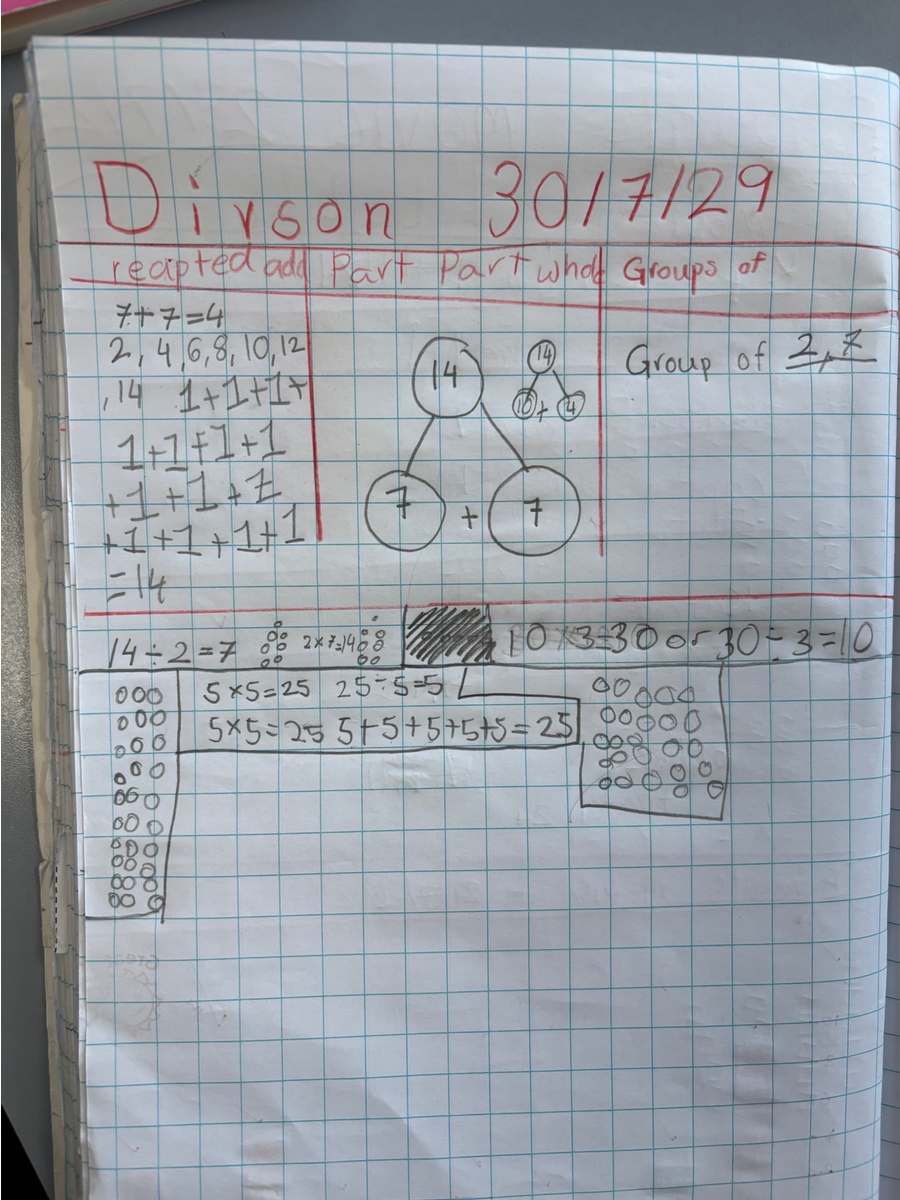 Dirson 30/7/29
reapted add
Part Part whol
Groups of
7+7=4
2, 4,6,8,10,12
,14 1+1+1+
1+1+1+1
+1+1+1
+1+1+1+1
=14
14
7 + 7
14
10 + 4
Group of 2,7
14÷2=7 2×7=14
10×3=30 or 30÷3=10
5×5=25 25÷5=5
5×5=25 5+5+5+5+5=25